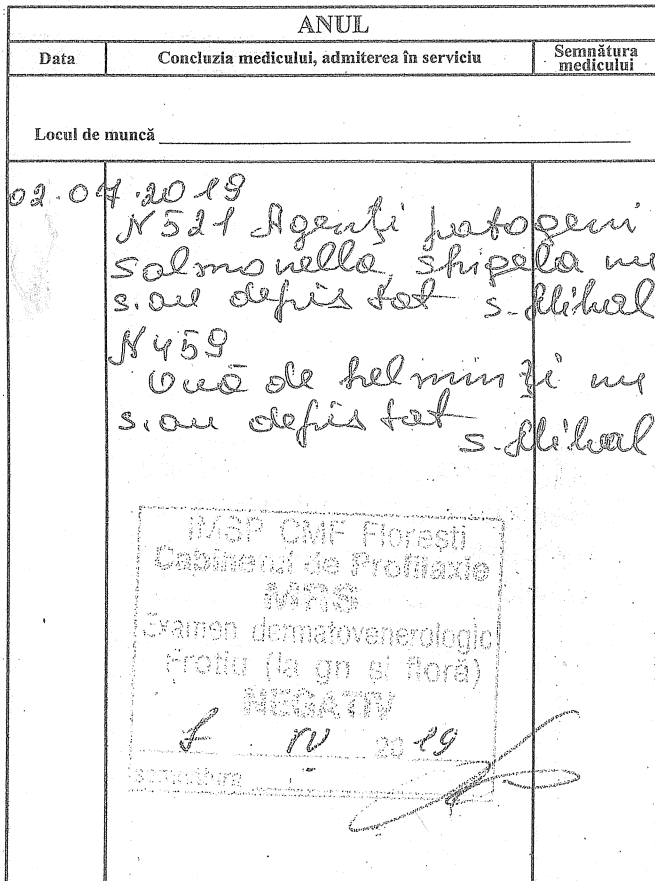 ANUL
Data Concluzia medicului, admiterea în serviciu Semnătura medicului
Locul de muncă
02.07.2019
N521 Agenți patogeni
Salmonella, shigela nu
s.au depistat s. Mihal
N459
Ouă de helminți nu
s.au depistat
s. Mihal
IMSP CMF Florești
Cabinetul de Profilaxie
MRS
Examen dermatovenerologic
Frotiu (la gn si floră)
NEGATIV
IV 2019
semnătura